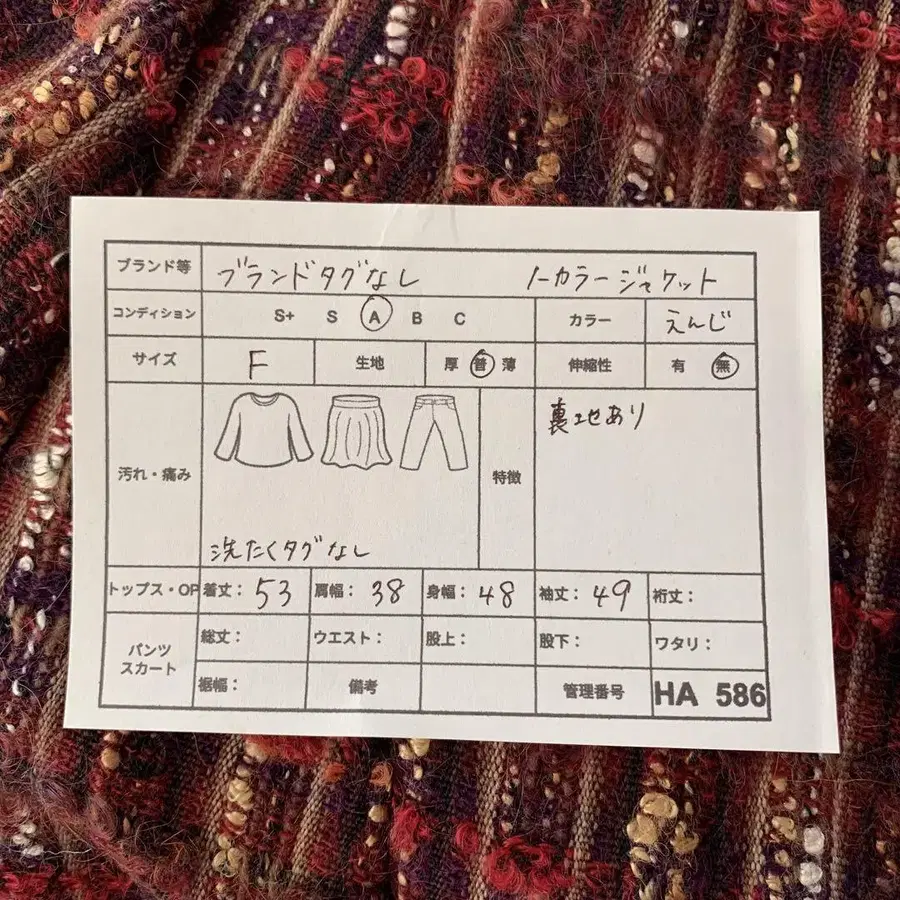 ブランド等 ブランドタグなし ノーカラージャケット
コンディション S+ S A B C カラー えんじ
サイズ F 生地 厚 普 薄 伸縮性 有 無
汚れ・痛み 洗たくタグなし 特徴 裏地あり
トップス・OP 着丈： 53 肩幅： 38 身幅： 48 袖丈： 49 裄丈：
パンツ スカート 総丈： ウエスト： 股上： 股下： ワタリ：
裾幅： 備考 管理番号 HA 586